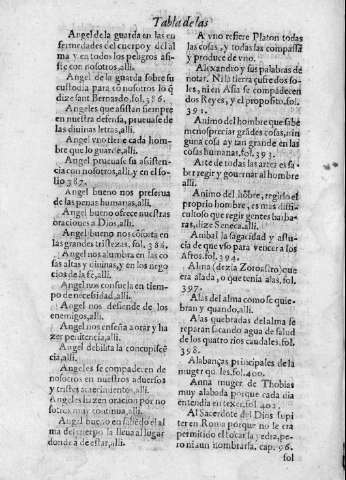 Tabla de las
Angel de la guarda en las en
fermedades del cuerpo y del al
ma y en todos los peligros asis-
te con nosotros, alli.
Angel de la guarda sobre su
custodia para cõ nosotros lo q̃
dize sant Bernardo. fol. 386.
Angeles que asistan siempre
en nuestra defensa, prueuase de
las diuinas letras, alli.
Angel vno tiene cada hom-
bre que lo guarde, alli.
Angel prueuase su asistẽ-
cia con nosotros, alli, y en el fo-
lio 387.
Angel bueno nos preserua
de las penas humanas, alli.
Angel bueno ofrece nuestras
oraciones a Dios, alli.
Angel bueno nos cõforta en
las grandes tristezas. fol. 388.
Angel nos alumbra en las co
sas altas y diuinas, y en los nego
cios de la fè, alli.
Angel nos consuela en tiem-
po de necesidad, alli.
Angel nos defiende de los
enemigos, alli.
Angel nos enseña a orar y ha
zer penitencia, alli.
Angel debilita la concupiscẽ
cia, alli.
Angeles se compadecen de
nosotros en nuestros aduersos
y tristes acaecimientos, alli.
Angeles hazen oracion por no
sotros muy continua, alli.
Angel bueno en saliẽdo el al
ma del cuerpo la lleua al lugar
donde à de estar, alli.
A vno refiere Platon todas
las cosas, y todas las compassa
y produce de vno.
Alexandro y sus palabras de
notar. Ni la tierra sufre dos so-
les, ni en Asia se compadecen
dos Reyes, y el proposito. fol.
393.
Animo del hombre que sabe
menospreciar grãdes cosas, nin
guna cosa ay tan grande en las
cosas humanas. fol. 393.
Arte de todas las artes es sa-
ber regir y gouernar al hombre
alli.
Animo del hõbre, regirlo el
proprio hombre, es mas diffi-
cultoso que regir gentes barba-
ras, dize Seneca. alli.
Anibal la sagacidad y astu-
cia de que vso para vencer a los
Afros. fol. 394.
Alma (dezia Zoroastro) que
era alada, o que tenia alas. fol.
397.
Alas del alma como se quie-
bran y quando, alli.
Alas quebradas del alma se
reparan sacando agua de salud
de los quatro rios caudales. fol.
398.
Alabanças principales de la
muger quales. fol. 400.
Anna muger de Thobias
muy alabada porque cada dia
entendia en texer. fol. 402.
Al Sacerdote del Dios Iupi
ter en Roma porque no le era
permitido el tocar la yedra, pe-
ro ni aun nombrarla. cap. 96.
fol